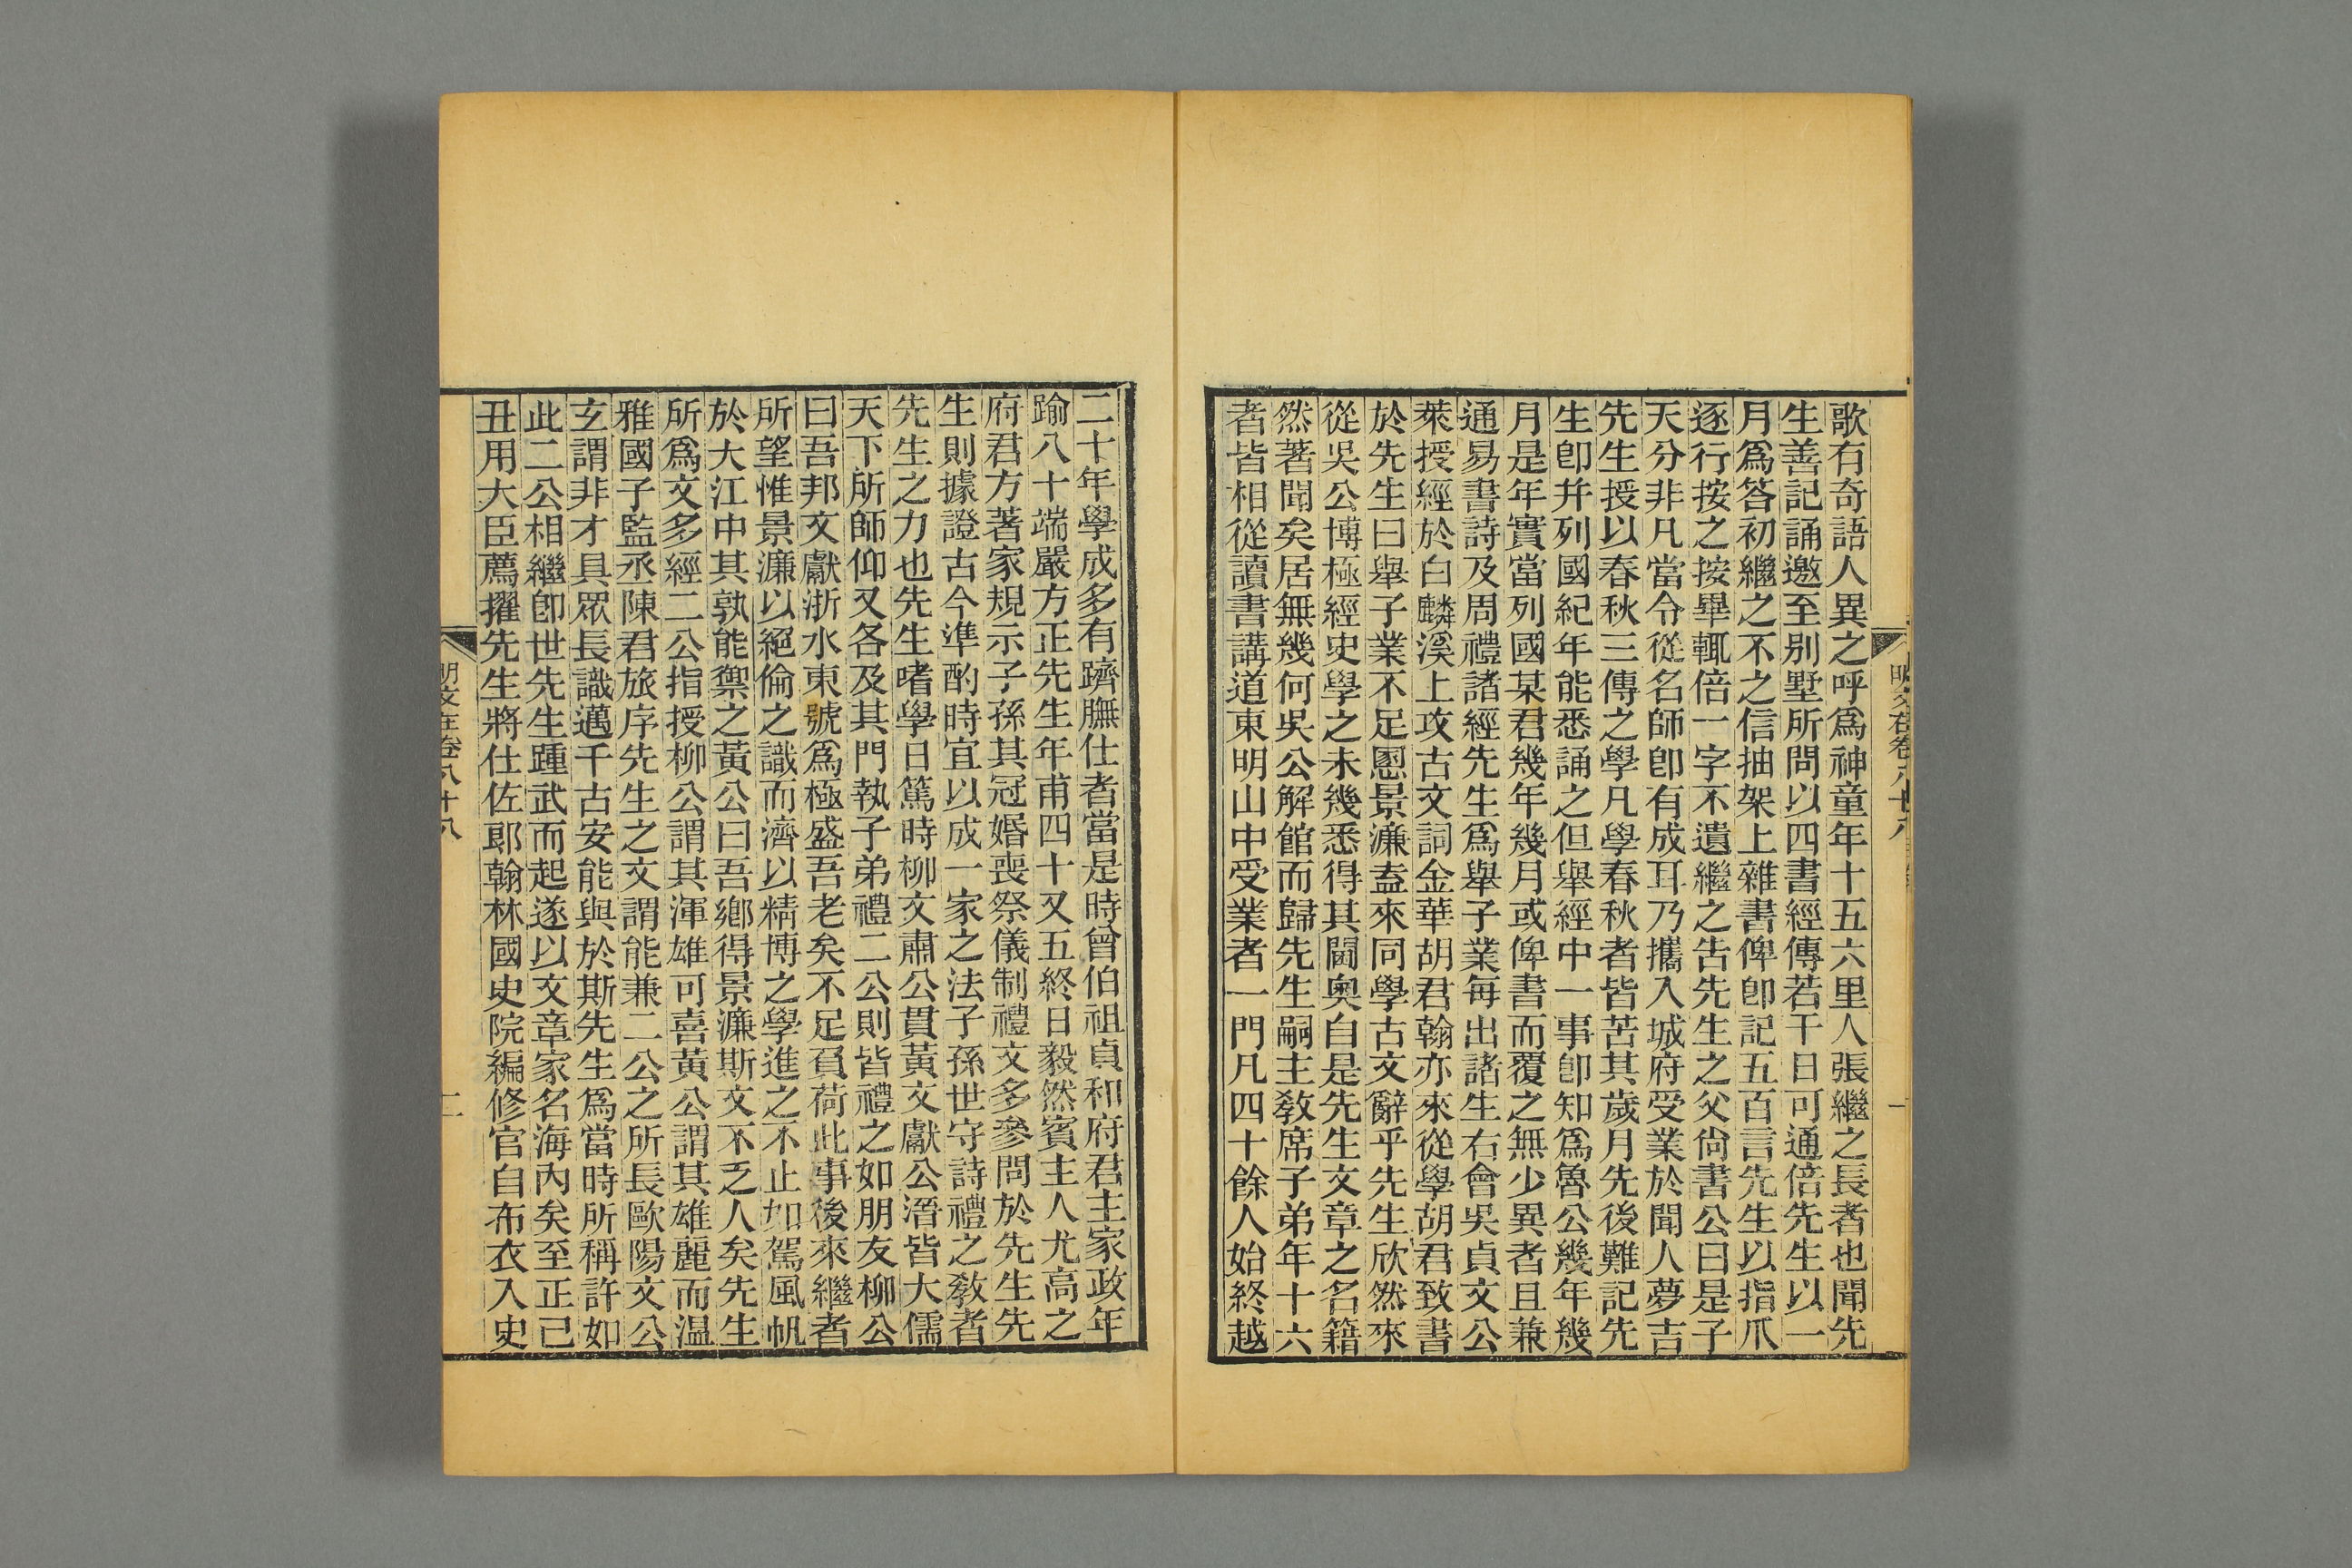 歌有奇語人異之呼爲神童年十五六里人張繼之長者也聞先
生善記誦邀至別墅所問以四書經傳若干日可通倍先生以一
月爲答初繼之不之信抽架上雜書俾卽記五百言先生以指爪
逐行按之按畢輒倍一字不遺繼之告先生之父尙書公曰是子
天分非凡當令從名師卽有成耳乃攜入城府受業於聞人夢吉
先生授以春秋三傳之學凡學春秋者皆苦其歲月先後難記先
生卽幷列國紀年能悉誦之但舉經中一事卽知爲魯公幾年幾
月是年實當列國某君幾年幾月或俾書而覆之無少異者且兼
通易書詩及周禮諸經先生爲舉子業每出諸生右會吳貞文公
萊授經於白麟溪上攻古文詞金華胡君翰亦來從學胡君致書
於先生曰舉子業不足慁景濂盍來同學古文辭乎先生欣然來
從吳公博極經史學之未幾悉得其閫奧自是先生文章之名籍
然著聞矣居無幾何吳公解館而歸先生嗣主敎席子弟年十六
者皆相從讀書講道東明山中受業者一門凡四十餘人始終越
明文在卷八十八
二十年學成多有躋膴仕者當是時曾伯祖貞和府君主家政年
踰八十端嚴方正先生年甫四十又五終日毅然賓主人尤高之
府君方著家規示子孫其冠婚喪祭儀制禮文多參問於先生先
生則據證古今準酌時宜以成一家之法子孫世守詩禮之敎者
先生之力也先生嗜學日篤時柳文肅公貫黃文獻公溍皆大儒
天下所師仰又各及其門執子弟禮二公則皆禮之如朋友柳公
曰吾邦文獻浙水東號爲極盛吾老矣不足負荷此事後來繼者
所望惟景濂以絕倫之識而濟以精博之學進之不止如駕風帆
於大江中其孰能禦之黃公曰吾鄉得景濂斯文不乏人矣先生
所爲文多經二公指授柳公謂其渾雄可喜黃公謂其雄麗而温
雅國子監丞陳君旅序先生之文謂能兼二公之所長歐陽文公
玄謂非才具眾長識邁千古安能與於斯先生爲當時所稱許如
此二公相繼卽世先生踵武而起遂以文章家名海內矣至正己
丑用大臣薦擢先生將仕佐郎翰林國史院編修官自布衣入史
明文在卷八十八
二